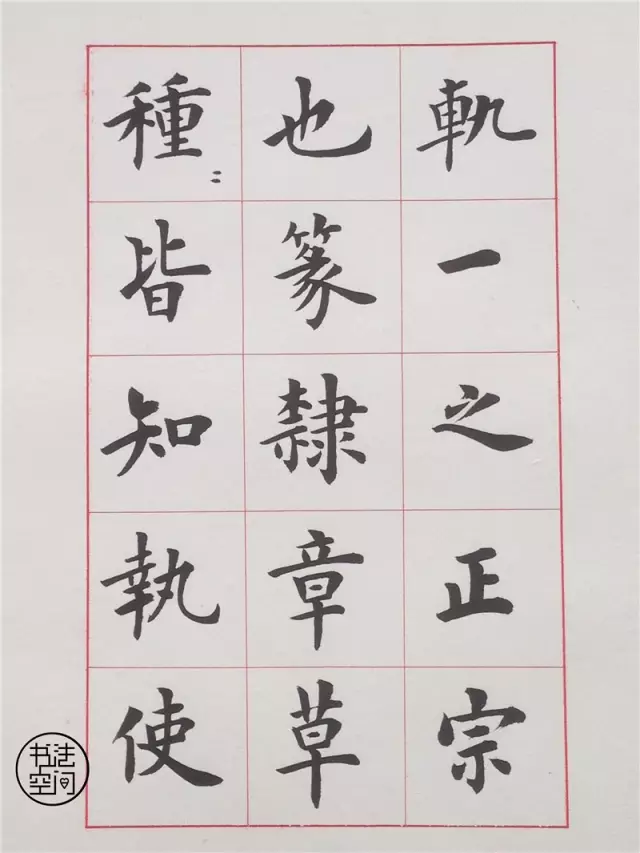 軌一之正宗
也篆隸章草
種〻皆知執使
书法空间